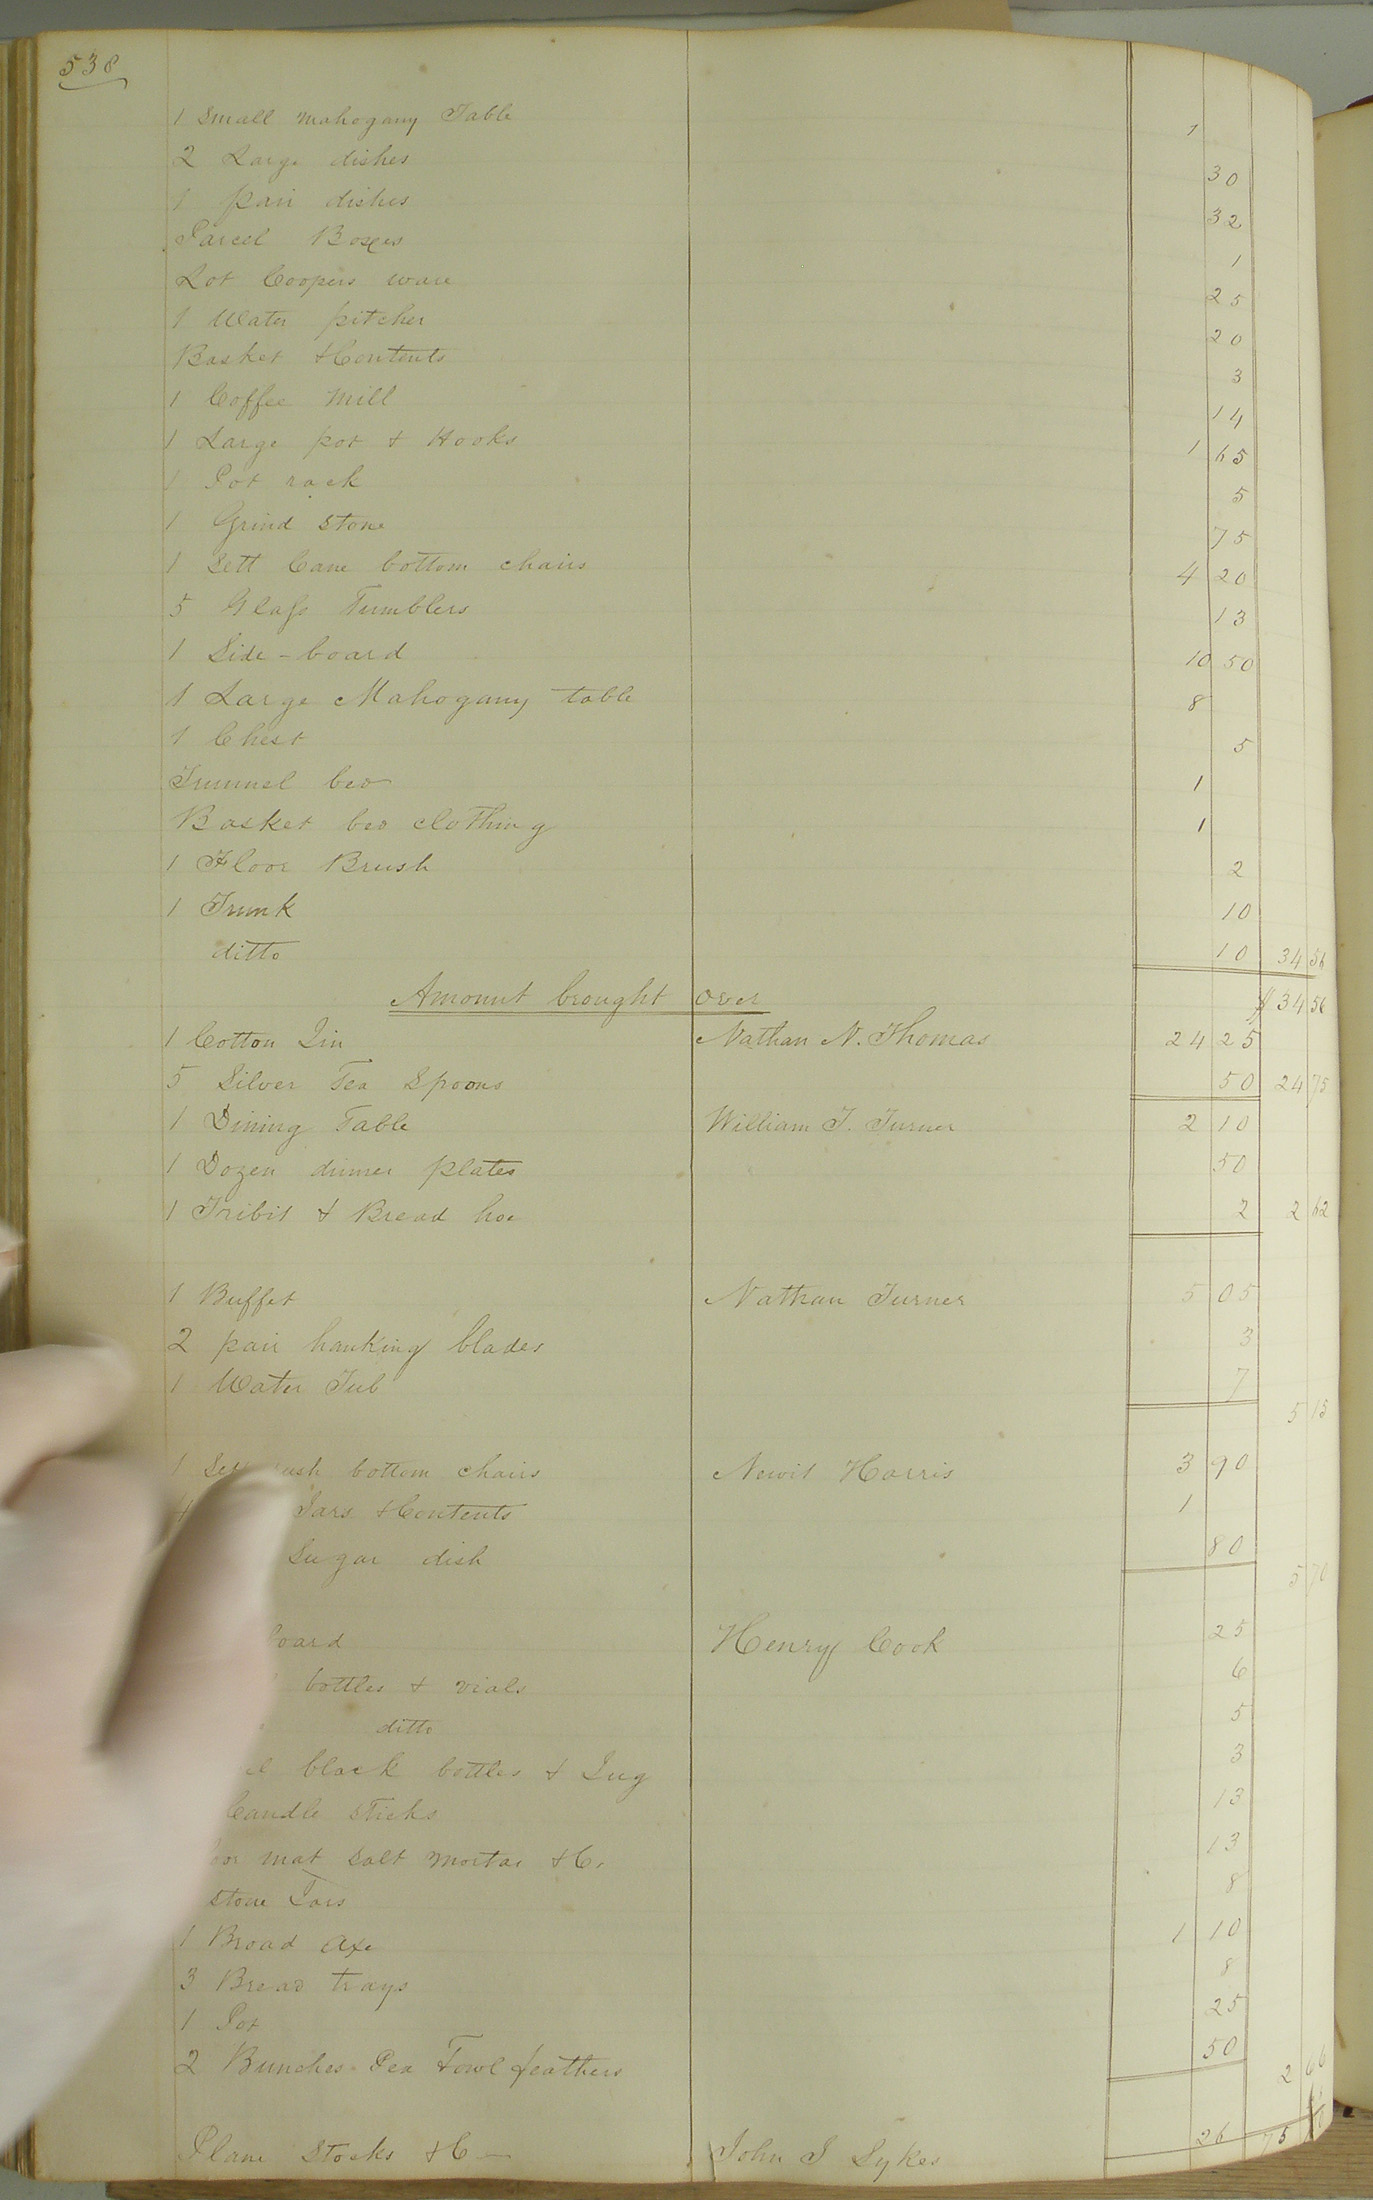 538
1 Small mahogany Table 1
2 Large dishes 30
1 pair dishes 32
Parcel Boxes 1
Lot Coopers ware 25
1 Water pitcher 20
Basket & Contents 3
1 Coffee mill 14
1 Large pot & Hooks 1 65
1 Pot rack 5
1 Grind stone 75
1 Sett Cane bottom chairs 4 20
5 Glass Tumblers 13
1 Side-board 10 50
1 Large Mahogany table 8
1 Chest 5
Trunnel bed 1
Basket bed clothing 1
1 Floor Brush 2
1 Trunk 10
ditto 10 34 56
Amount brought over $ 34 56
1 Cotton Gin Nathan N. Thomas 24 25
5 Silver Tea Spoons 50 24 75
1 Dining Table William T. Turner 2 10
1 Dozen dinner plates 50
1 Tribit & Bread hoe 2 2 62
1 Buffet Nathan Turner 5 05
2 pair hanking blades 3
1 Water Tub 7
5 15
1 Sett rush bottom chairs Newit Harris 3 90
Jars & Contents 1
Sugar dish 80
5 70
board Henry Cook 25
bottles & vials 6
ditto 5
black bottles & Jug 3
Candle sticks 13
mat salt mortar &C. 13
stone Jars 8
1 Broad axe 1 10
3 Bread trays 8
1 Pot 25
2 Bunches Pea Fowl feathers 50
2 66
Plane Stocks &C — John S Sykes 26 75